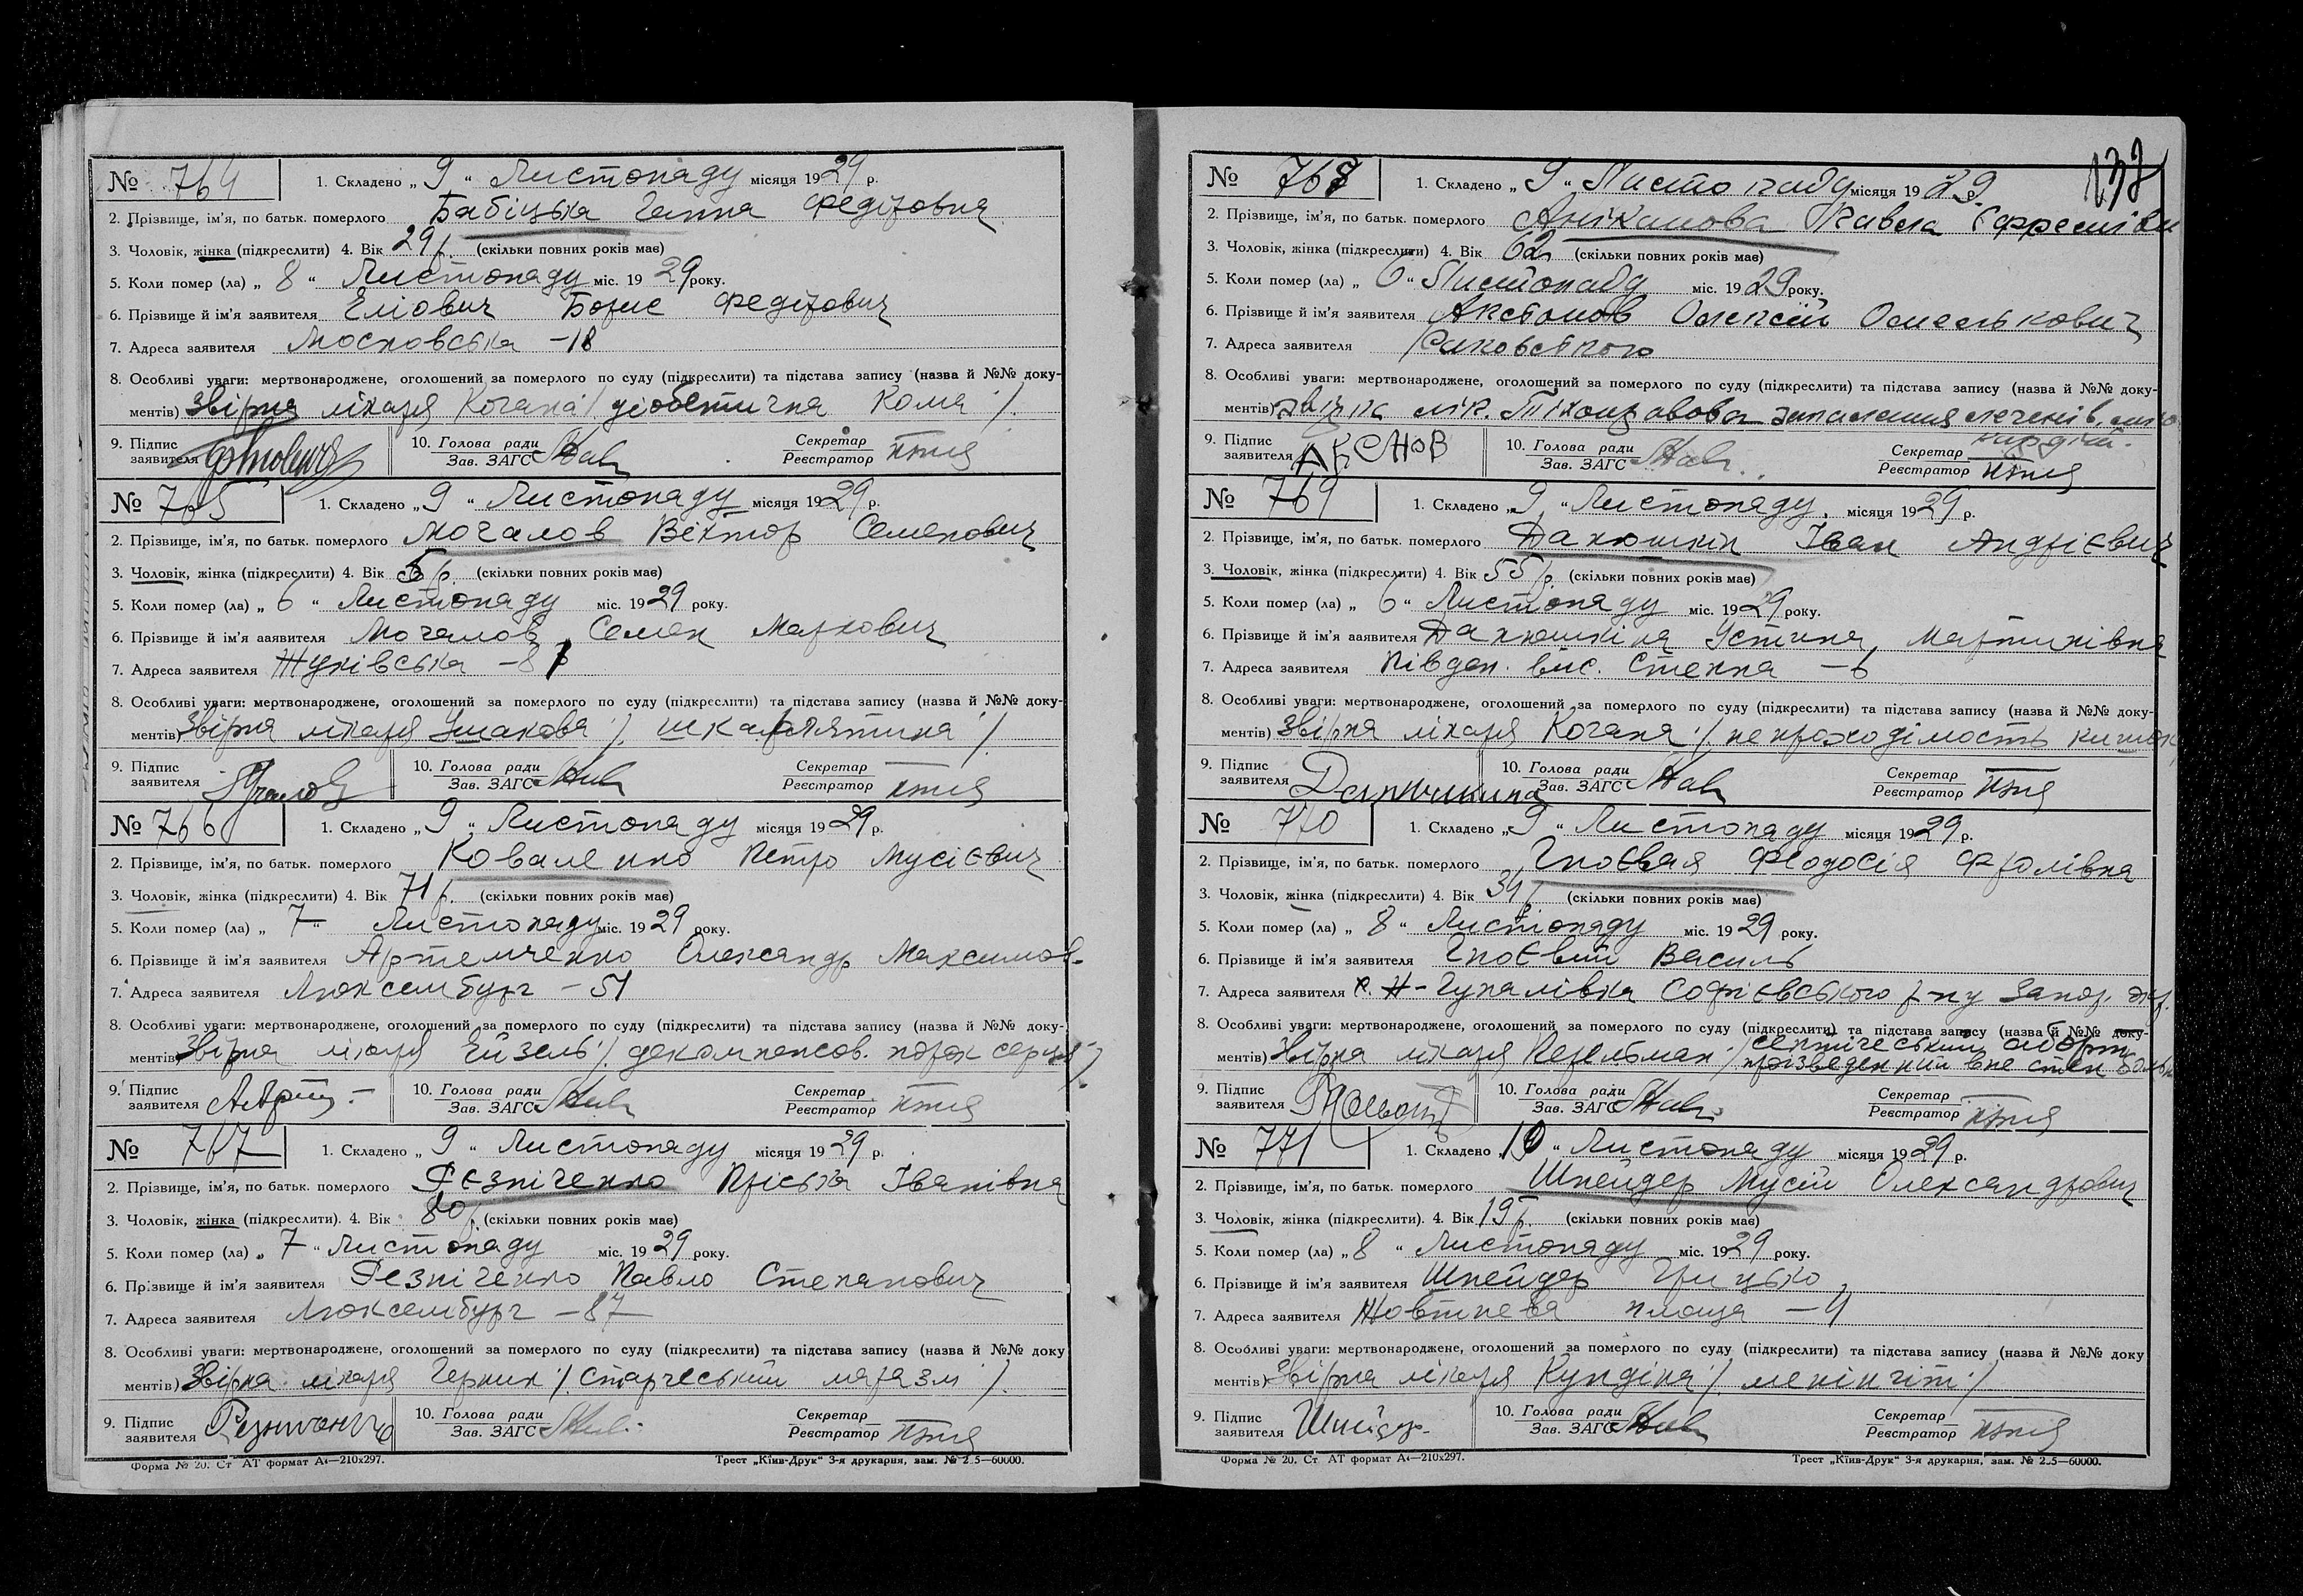 № 764 1. Складено „ 9 “ Листопаду місяця 1929 р.
2. Прізвище, ім'я, по батьк. померлого Бабіцька Ганна Федоровна
3. Чоловік, жінка (підкреслити) 4. Вік 29 р. (скільки повних років має)
5. Коли помер (ла) „ 8 “ Листопаду міс. 1929 року.
6. Прізвище й ім'я заявителя Еліович Борис Федорович
7. Адреса заявителя Московська – 18
8. Особливі уваги: мертвонароджене, оголошений за померлого по суду (підкреслити) та підстава запису (назва й №№ доку-
ментів) Звірка лікаря Когана / діобетична кома /.
9. Підпис заявителя 10. Голова ради Зав. ЗАГС Секретар Реєстратор
№ 765 1. Складено „ 9 “ Листопаду місяця 1929 р.
2. Прізвище, ім'я, по батьк. померлого Мочалов Віктор Семенович
3. Чоловік, жінка (підкреслити) 4. Вік 5 р. (скільки повних років має)
5. Коли помер (ла) „ 6 “ Листопаду міс. 1929 року.
6. Прізвище й ім'я заявителя Мочалов Семен Маркович
7. Адреса заявителя Жуківська
8. Особливі уваги: мертвонароджене, оголошений за померлого по суду (підкреслити) та підстава запису (назва й №№ доку-
ментів) Звірка лікаря Ушакова /. шкарлятина /
9. Підпис заявителя 10. Голова ради Зав. ЗАГС Секретар Реєстратор
№ 766 1. Складено „ 9 “ Листопаду місяця 1929 р.
2. Прізвище, ім'я, по батьк. померлого Коваленко Петро Мусієвич
3. Чоловік, жінка (підкреслити) 4. Вік 71 р. (скільки повних років має)
5. Коли помер (ла) „ 7 “ Листопаду міс. 1929 року.
6. Прізвище й ім'я заявителя Артемченко Олександр Максимов.
7. Адреса заявителя Люксембург – 51
8. Особливі уваги: мертвонароджене, оголошений за померлого по суду (підкреслити) та підстава запису (назва й №№ доку-
ментів) Звірка лікаря Ейзель /. декомпенсов. порок серця /
9. Підпис заявителя 10. Голова ради Зав. ЗАГС Секретар Реєстратор
№ 767 1. Складено „ 9 “ Листопаду місяця 1929 р.
2. Прізвище, ім'я, по батьк. померлого Рєзніченко Пріська Іванівна
3. Чоловік, жінка (підкреслити). 4. Вік 80 р. (скільки повних років має)
5. Коли помер (ла) „ 7 “ Листопаду міс. 1929 року.
6. Прізвище й ім'я заявителя Резніченко Павло Степанович
7. Адреса заявителя Люксембург – 87
8. Особливі уваги: мертвонароджене, оголошений за померлого по суду (підкреслити) та підстава запису (назва й №№ доку
ментів) Звірка лікаря Черник /. старческий маразм /.
9. Підпис заявителя 10. Голова ради Зав. ЗАГС Секретар Реєстратор
Форма № 20. Ст АТ формат А4—210х297. Трест „Київ-Друк“ 3-я друкарня, зам. № 2.5—60000.
138
№ 768 1. Складено „ 9 “ Листопаду місяця 1929 р.
2. Прізвище, ім'я, по батьк. померлого Аніканова
3. Чоловік, жінка (підкреслити) 4. Вік 62 (скільки повних років має)
5. Коли помер (ла) „ 6 “ Листопаду міс. 1929 року.
6. Прізвище й ім'я заявителя Аксьонов Олексій Омелькович
7. Адреса заявителя
8. Особливі уваги: мертвонароджене, оголошений за померлого по суду (підкреслити) та підстава запису (назва й №№ доку-
ментів) звірка лік. Тіхонравова запалення
9. Підпис заявителя АКСНОВ 10. Голова ради Зав. ЗАГС Секретар Реєстратор
№ 769 1. Складено „ 9 “ Листопаду місяця 1929 р.
2. Прізвище, ім'я, по батьк. померлого Данюшкін Іван Андрієвич
3. Чоловік, жінка (підкреслити) 4. Вік 55 р. (скільки повних років має)
5. Коли помер (ла) „ 6 “ Листопаду міс. 1929 року.
6. Прізвище й ім'я заявителя Данюшкіна Устина Мартинівна
7. Адреса заявителя Півден. вис. Степна – 6
8. Особливі уваги: мертвонароджене, оголошений за померлого по суду (підкреслити) та підстава запису (назва й №№ доку-
ментів) Звірка лікаря Когана / непроходімость кишок
9. Підпис заявителя Данюшкина 10. Голова ради Зав. ЗАГС Секретар Реєстратор
№ 770 1. Складено „ 9 “ Листопаду місяця 1929 р.
2. Прізвище, ім'я, по батьк. померлого Гноєвая Феодосія Фролівна
3. Чоловік, жінка (підкреслити) 4. Вік 34 р. (скільки повних років має)
5. Коли помер (ла) „ 8 “ Листопаду міс. 1929 року.
6. Прізвище й ім'я заявителя Гноєвий Василь
7. Адреса заявителя с. Н-Гупалівка Софієвського р-ну Запор. окр.
8. Особливі уваги: мертвонароджене, оголошений за померлого по суду (підкреслити) та підстава запису (назва й №№ доку-
ментів) Звірка лікаря Перельман / септіческий аборт произведенний вне стен
9. Підпис заявителя 10. Голова ради Зав. ЗАГС Секретар Реєстратор
№ 771 1. Складено „ 10 “ Листопаду місяця 1929 р.
2. Прізвище, ім'я, по батьк. померлого Шнейдер Мусій Олександрович
3. Чоловік, жінка (підкреслити). 4. Вік 19 р. (скільки повних років має)
5. Коли помер (ла) „ 8 “ Листопаду міс. 1929 року.
6. Прізвище й ім'я заявителя Шнейдер Грицько
7. Адреса заявителя Жовтнева площа – 4
8. Особливі уваги: мертвонароджене, оголошений за померлого по суду (підкреслити) та підстава запису (назва й №№ доку
ментів) Звірка лікаря Кундіна /. менінгіт /
9. Підпис заявителя 10. Голова ради Зав. ЗАГС Секретар Реєстратор
Форма № 20. Ст АТ формат А4—210х297. Трест „Київ-Друк“ 3-я друкарня, зам. № 2.5—60000.